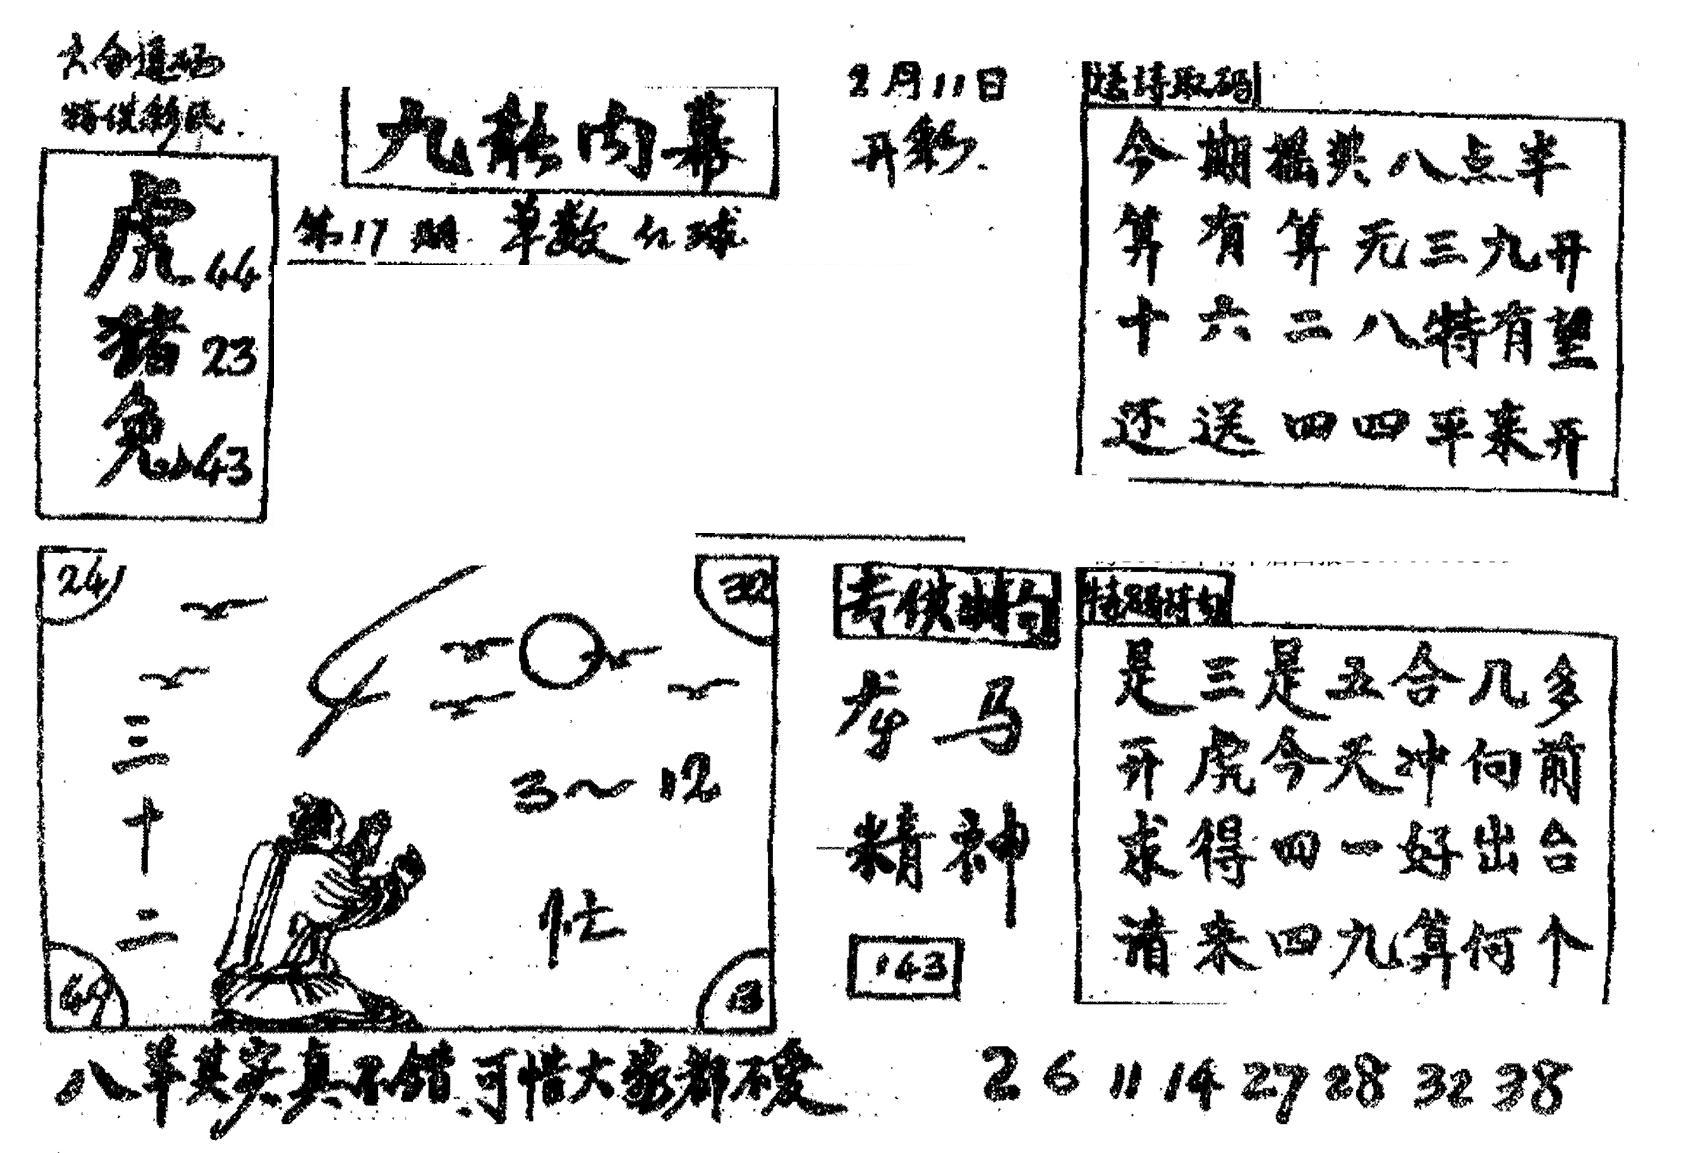 六合通码
特供彩民
九龙内幕
第17期 单数红球
2月11日
开彩
虎44
猪23
兔43
送诗取码
今期摇奖八点半
算有算无三九开
十六二八特有望
还送四四平来开
24
32
三十二
3～12
忙
49
13
专供
龙马
精神
143
是三是五合几多
开虎今天冲向前
求得四一好出台
请来四九算何个
八单其实真不错.可惜大家都不爱
2 6 11 14 27 28 32 38